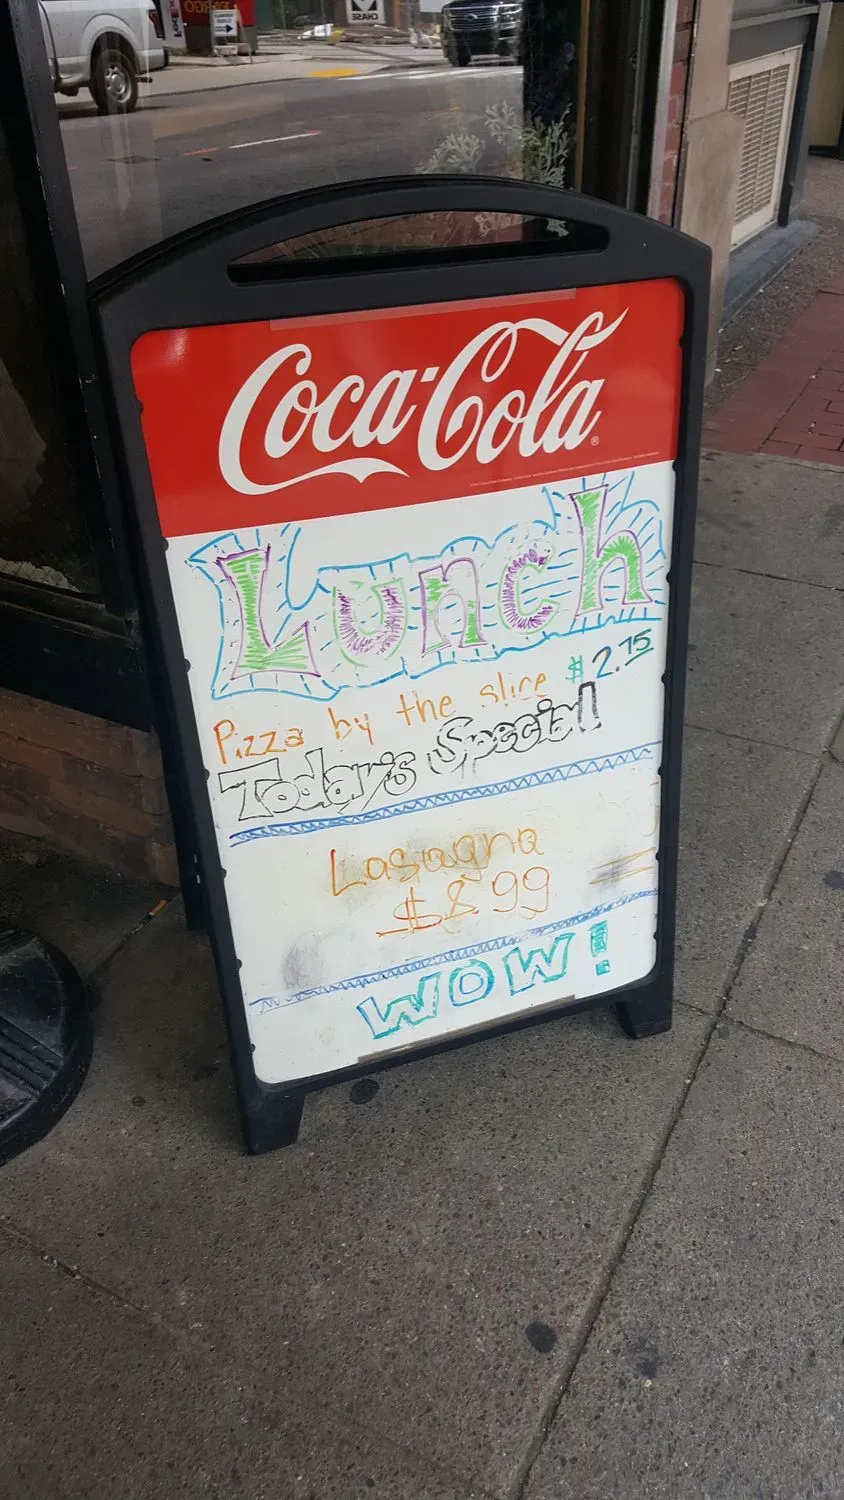 CHASE
Coca-Cola
Lunch
Pizza by the slice $2.75
Today's Special!
Lasagna
$8.99
WOW!